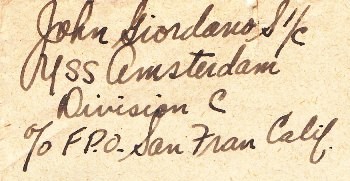 John Giordano S 1/c
USS Amsterdam
Division C
c/o F.P.O. San Fran Calif.